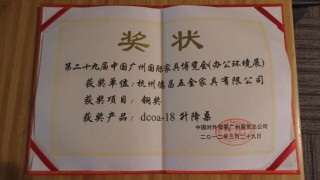 奖状
第二十九届中国广州国际家具博览会(办公环境展)
获奖单位：杭州德昌五金家具有限公司
获奖项目：铜奖
获奖产品：dcoa-18 升降桌
中国对外贸易广州展览总公司
二〇一二年三月二十九日